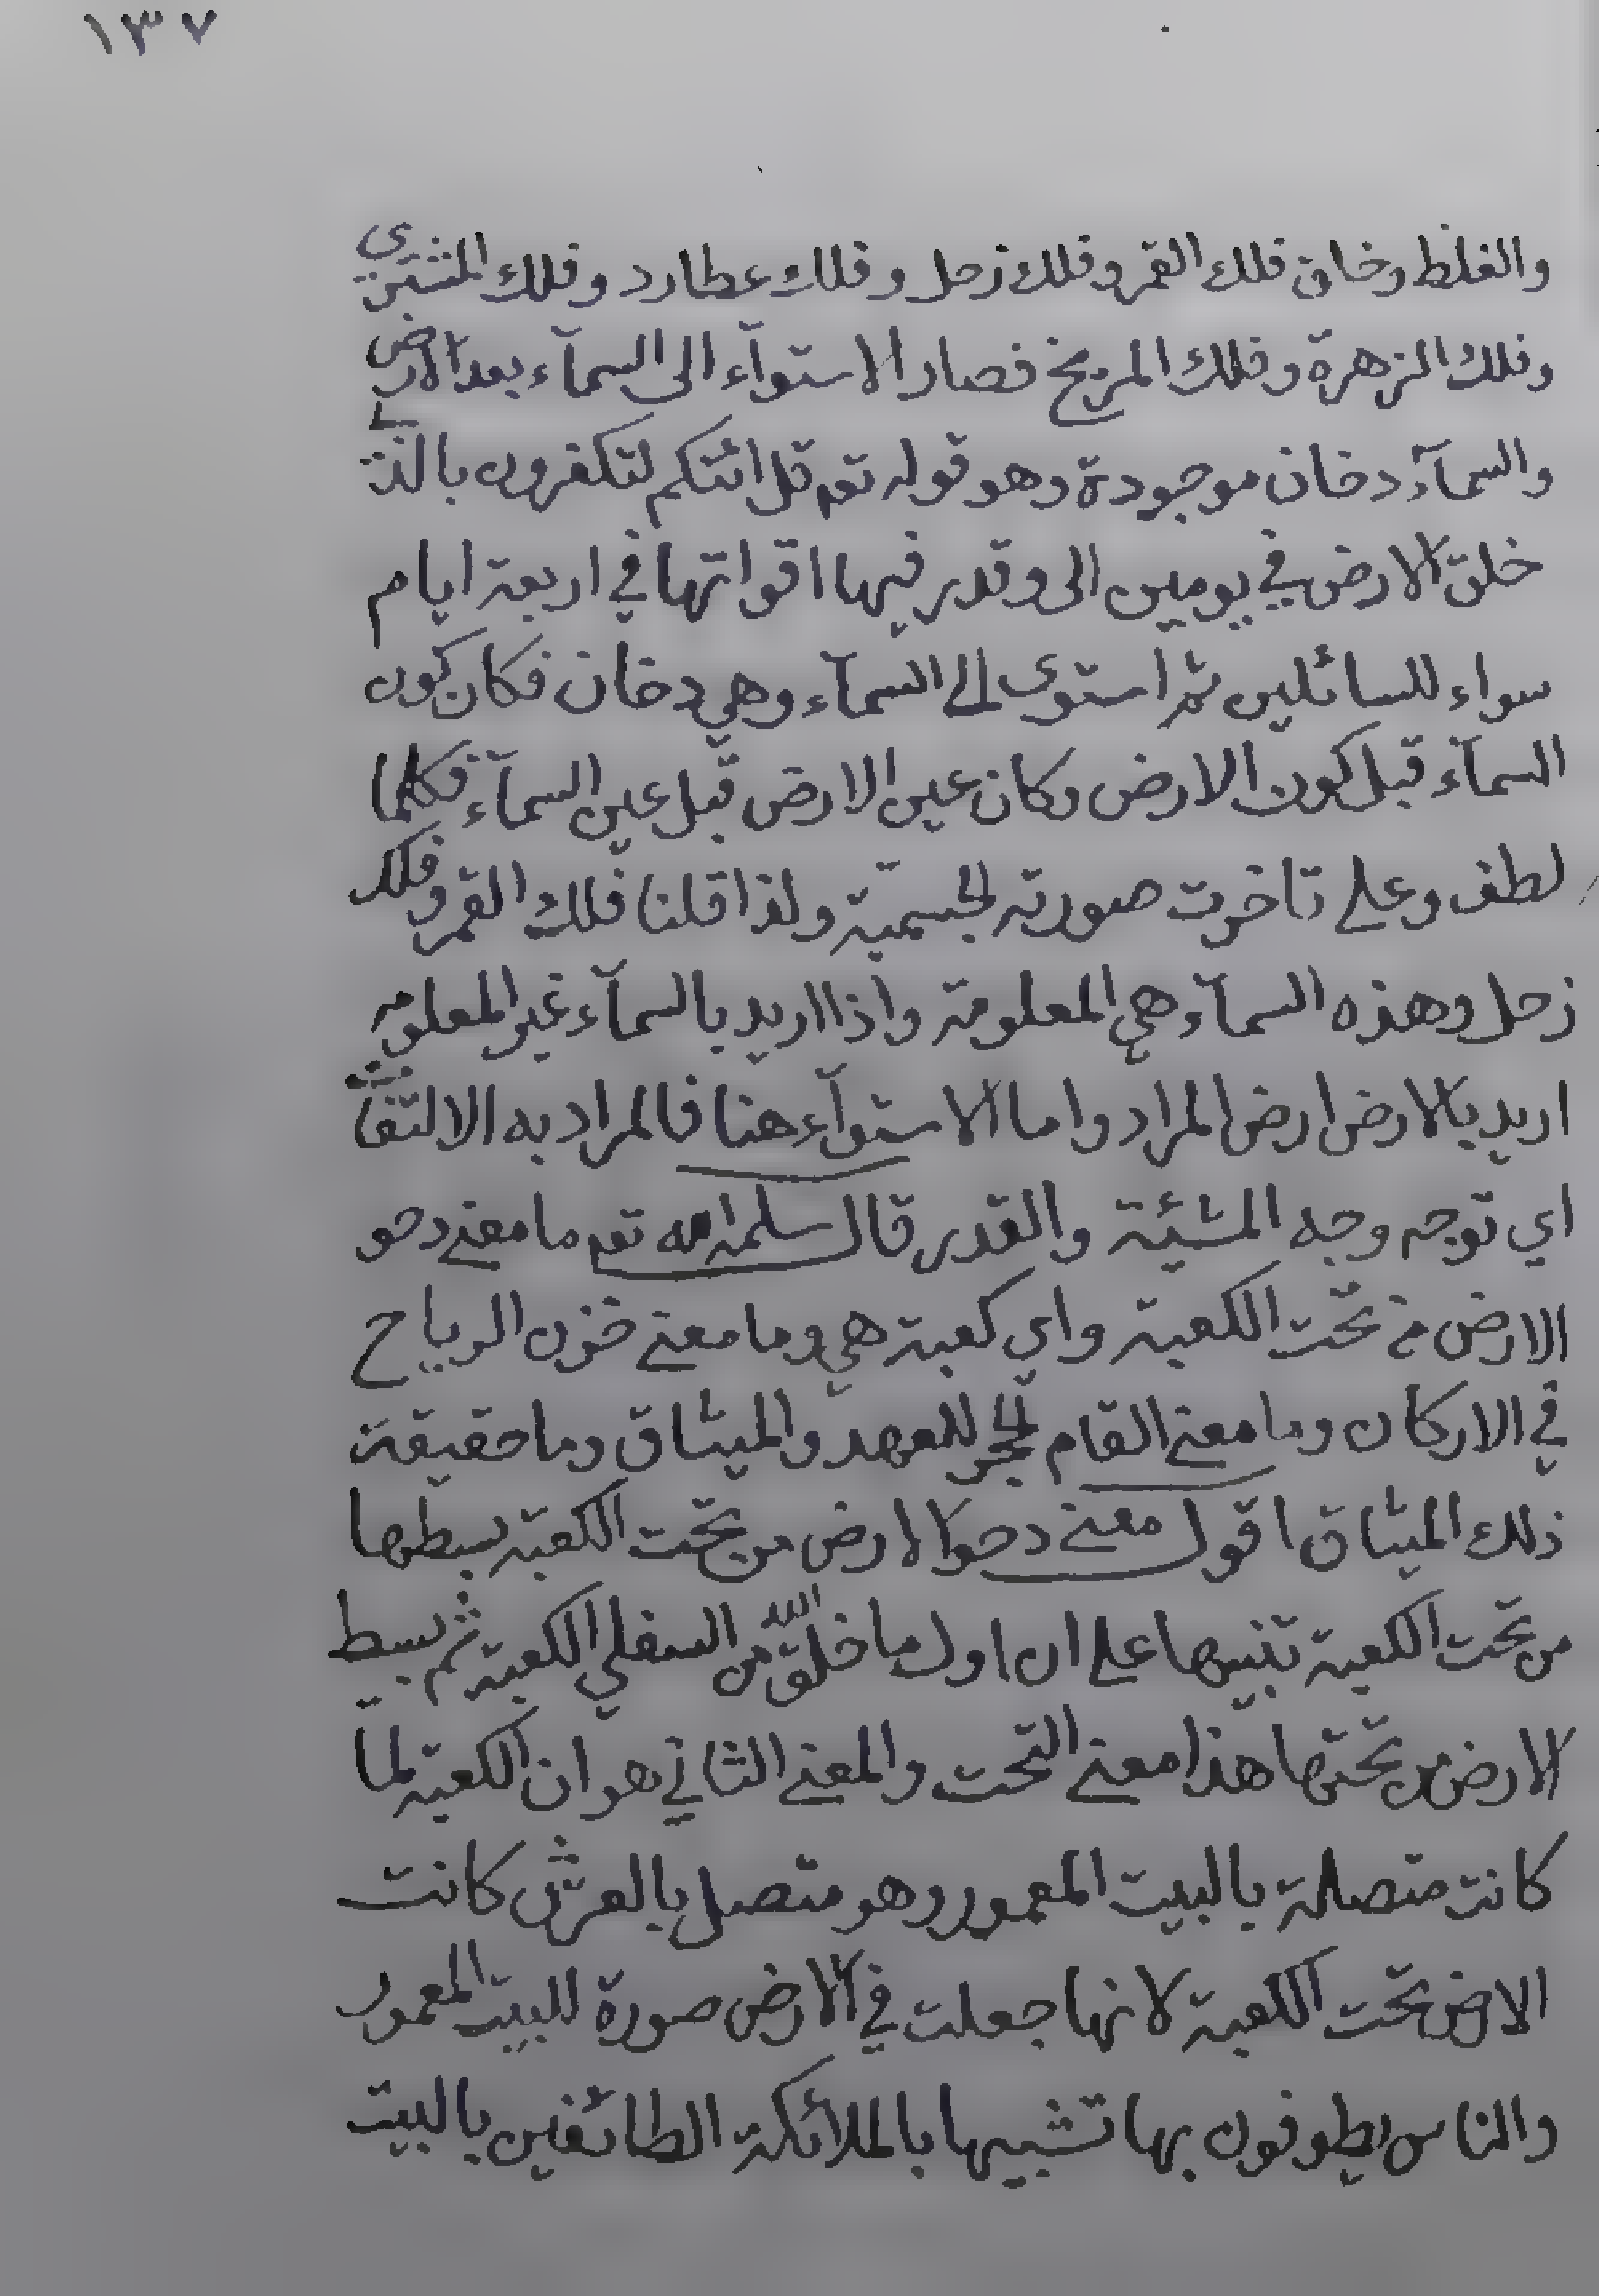 ١٣٧
والغلظ وخلق فلك القمر وفلك زحل وفلك عطارد وفلك المشتري
وفلك الزهرة وفلك المريخ فصار الاستوآء الى السمآء بعد الارض
والسمآء دخان موجودة وهو قوله تعه قل ائنكم لتكفرون بالذي
خلق الارض في يومين الى وقدر فيها اقواتها في اربعة ايام
سواء للسائلين ثم استوى الى السمآء وهي دخان فكان كون
السمآء قبل كون الارض وكان عين الارض قبل عين السمآء فكلما
لطف وعلى تاخرت صورته الجسميّة ولذا قلنا فلك القمر وفلك
زحل وهذه السمآء هي المعلومة واذا اريد بالسمآء غير المعلومة
اريد بالارض ارض المراد واما الاستوآء هنا فالمراد به الالتفات
اي توجه وجه المشئة والقدر قال سلمه الله تعه ما معنى دحو
الارض من تحت الكعبة واي كعبة هي وما معنى خزن الرياح
في الاركان وما معنى القام الحجر للعهد والميثاق وما حقيقة
ذلك الميثاق اقول معنى دحو الارض من تحت الكعبة بسطها
من تحت الكعبة تنبيها على ان اول ما خلق الله من السفلي الكعبة ثم بسط
الارض من تحتها هذا معنى التحت والمعنى الثاني هو ان الكعبة لما
كانت متصلة بالبيت المعمور وهو متصل بالعرش كانت
الارض تحت الكعبة لانها جعلت في الارض صورة للبيت المعمور
والناس يطوفون بها تشبيها بالملائكة الطائفين بالبيت